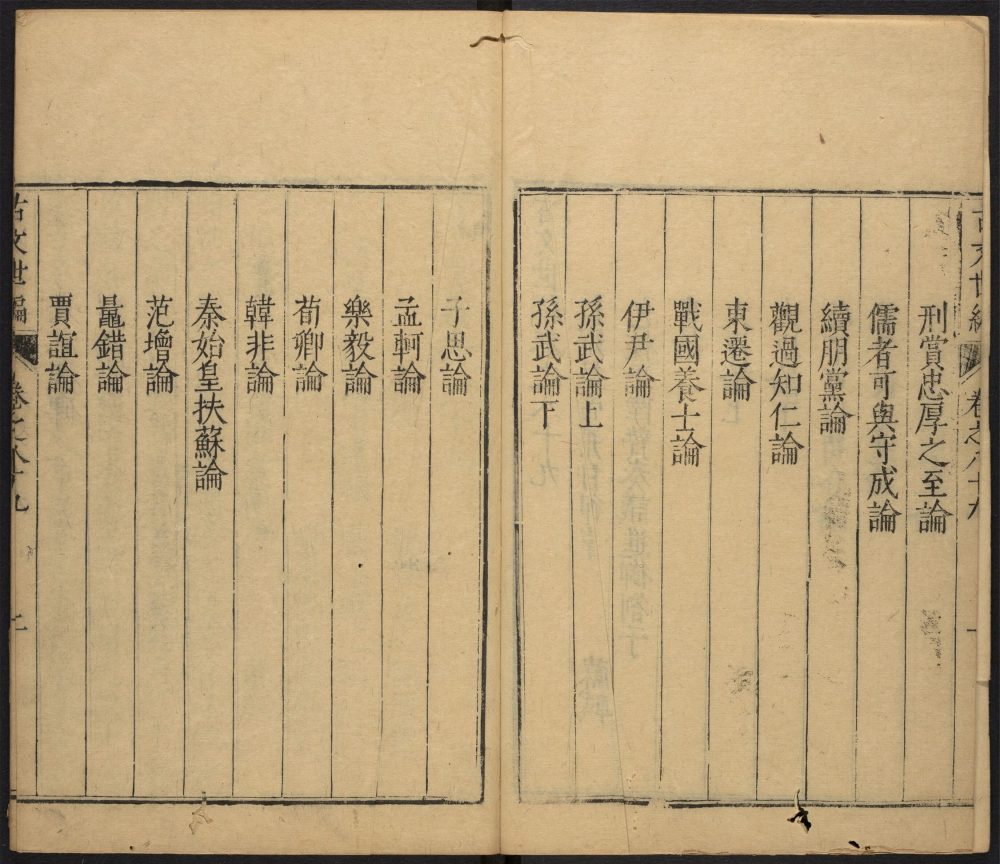 古文世編 卷之八十九 一
刑賞忠厚之至論
儒者可與守成論
續朋黨論
觀過知仁論
東遷論
戰國養士論
伊尹論
孫武論上
孫武論下
子思論
孟軻論
樂毅論
荀卿論
韓非論
秦始皇扶蘇論
范增論
鼂錯論
賈誼論
古文世編 卷之八十九 二